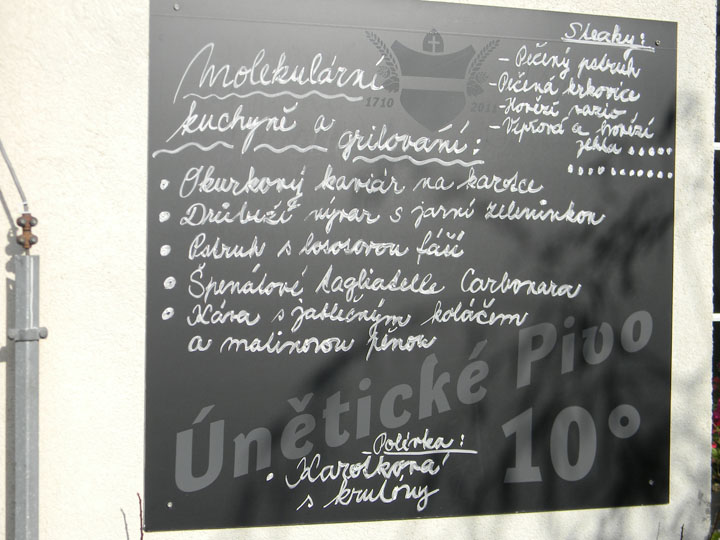 Steaky:
- Pečený pstruh
- Pečená krkovice
- Hovězí
- Vepřová a hovězí
1710 2011
Molekulární
kuchyně a
grilování:
• Okurkový kaviár na karotce
• Drůbeží vývar s jarní zeleninkou
• Pstruh s lososovou fáší
• Špenátové tagliatelle Carbonara
• Káva s jablečným koláčem
a malinovou pěnou
Únětické Pivo
10°
Polévka:
• Karotková
s krutóny